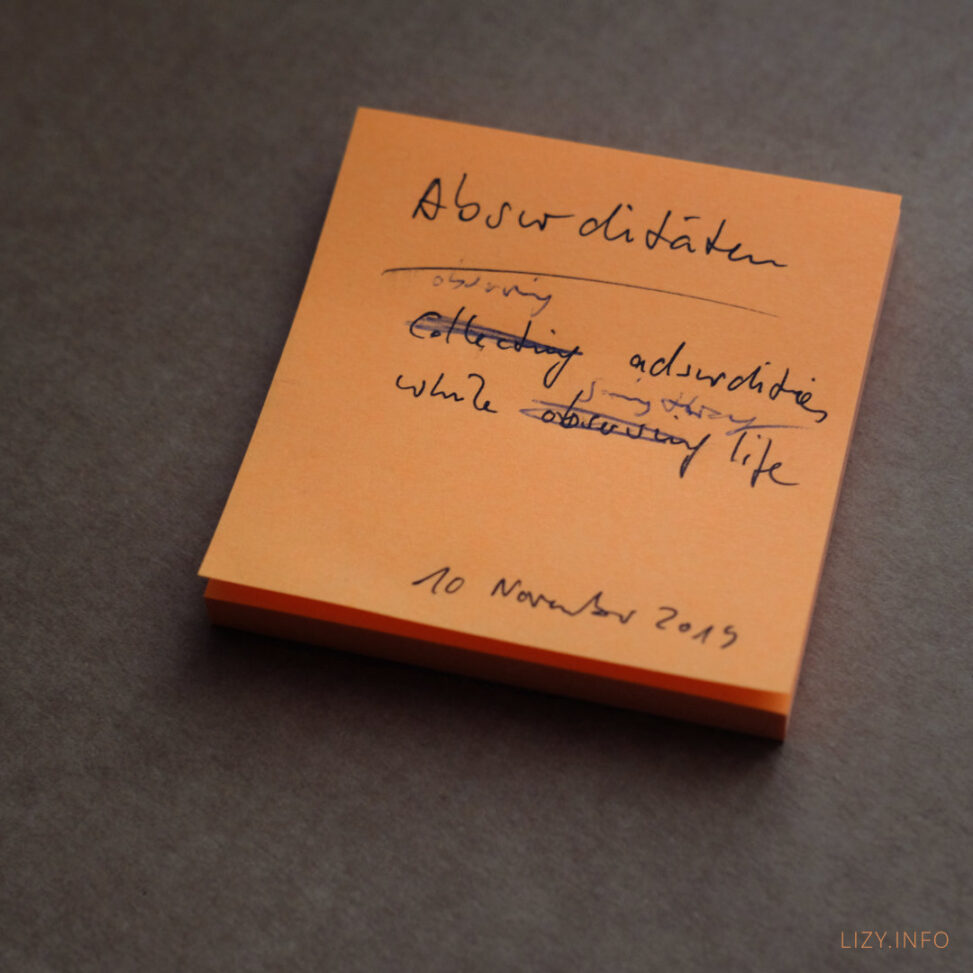 Absurditäten
observing
Collecting adsurdities
going through
while observing life
10 November 2019
LIZY.INFO